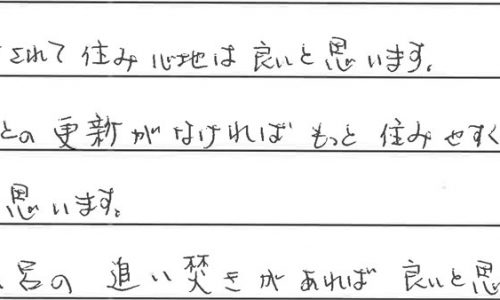 されて住み心地は良いと思います。
との更新がなければもっと住みやすく
思います。
呂の追い焚きがあれば良いと思